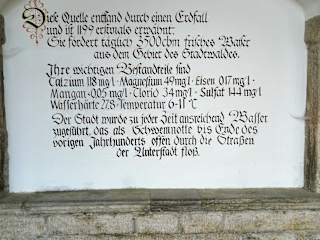 Diese Quelle entstand durch einen Erdfall
und ist 1199 erstmals erwähnt.
Sie fördert täglich 3500 cbm frisches Wasser
aus dem Gebiet des Stadtwaldes.
Ihre wichtigen Bestandteile sind
Calzium 118 mg/l · Magnesium 49 mg/l · Eisen 0.17 mg/l ·
Mangan · 0.05 mg/l · Clorid 34 mg/l · Sulfat 144 mg/l
Wasserhärte 27.8 · Temperatur 0-11°C
Der Stadt wurde zu jeder Zeit ausreichend Wasser
zugeführt, das als Schwemnotte bis Ende des
vorigen Jahrhunderts offen durch die Straßen
der Unterstadt floß.